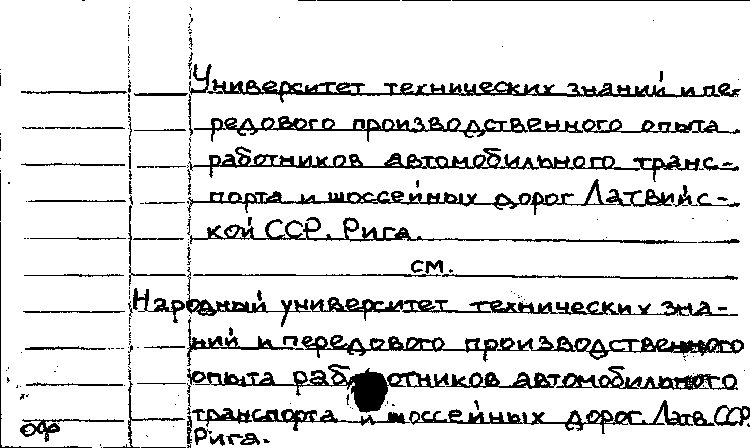 Университет технических знаний и пе-
редового производственного опыта
работников автомобильного транс-
порта и шоссейных дорог Латвийс-
кой ССР. Рига.
см.
Народный университет технических зна-
ний и передового производственного
опыта работников автомобильного
транспорта и шоссейных дорог Латв. ССР.
Рига.